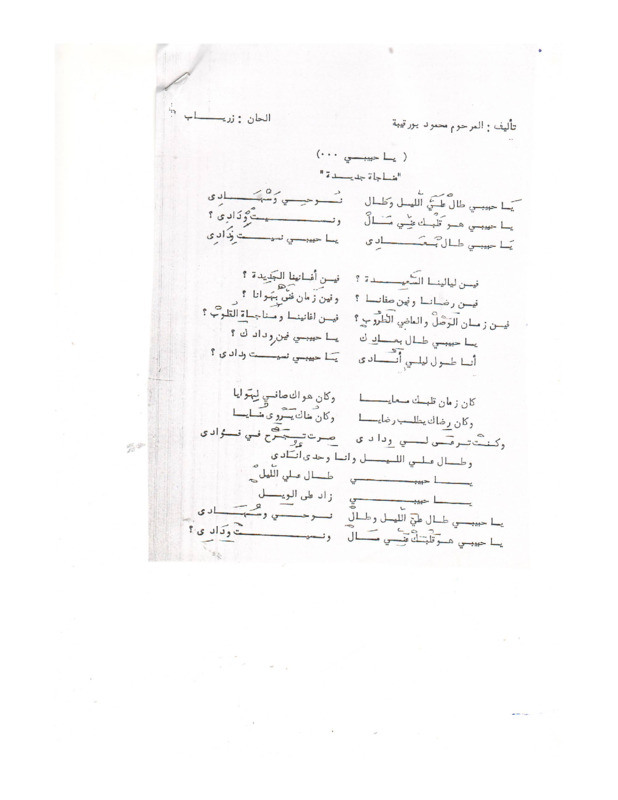 تأليف : المرحوم محمود بورقيبة الحان : زريـــاب
( يـا حبيبـي ٠٠٠)
"مناجاة جديـدة"
يَـا حبيبي طالْ طَيّ اللّيـل وطـال نُـوحـي وسُهَـــادى
يـا حبيبي هـو قلبـك فِـي مَـــالْ ونسيـــتْ وْدَادِى ؟
يَـا حبيبي طـال بْعَـــادِى يـا حبيبي نسيـت وْدَادِى
فيـن ليالينـا السَّعِيـــدة ؟ فيـن أغـانينا الجَدِيدة ؟
فيـن رضـانـا وفين صفانـا ؟ وفين زَمان فنّى بِهوانا ؟
فيـن زمـان الوَصْلْ والماضي الطَّروب ؟ فيـن اغانينـا ومنـاجـاة القلوبْ ؟
يـا حبيبي طـال بعـادك يـا حبيبي فين ودادك ؟
أنـا طـول ليلـي أُنَــادى يَـا حبيبي نسيـت ودادى ؟
كان زمان قلبـك معايـــا وكان هواك صافـي لِهوايا
وكان رِضاك يطلب رضايـــا وكان ضناك يَـرْوِى ضنايـا
وكـنْتْ تـرعـى لـــي ودادى صرت تجرَح فـي فـؤادى
وطـال علـي الليـــل وانـا وحدى انادى
يـــا حبيبـــي طـــال علـي اللّيلْ
يـــا حبيبـــي زاد علي الويـــل
يـا حبيبـي طـال طيّ اللّيـل وطـالْ نـوحـي وسُهَـــادى
يـا حبيبي هـو قلبَـكْ فِـي مَـــالْ ونسيـــتْ ودَادِى ؟